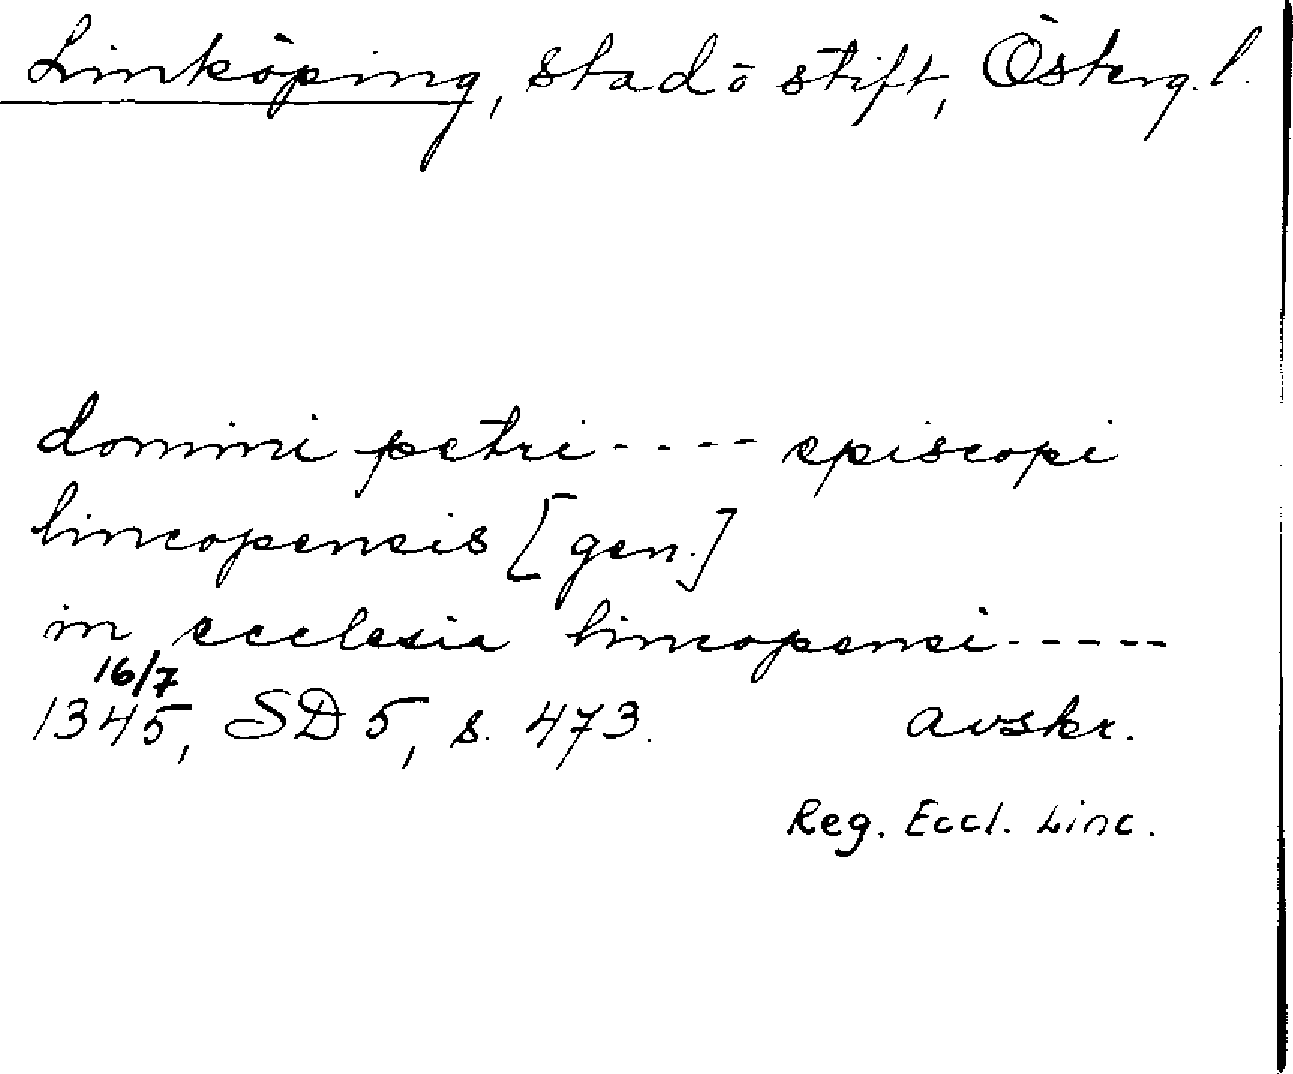 Linköping, stad ō stift, Österg.l.
domini petri ---- episcopi
lincopensis [gen.]
in ecclesia lincopensi -----
16/7
1345, SD 5, s. 473. avskr.
Reg. Eccl. Linc.